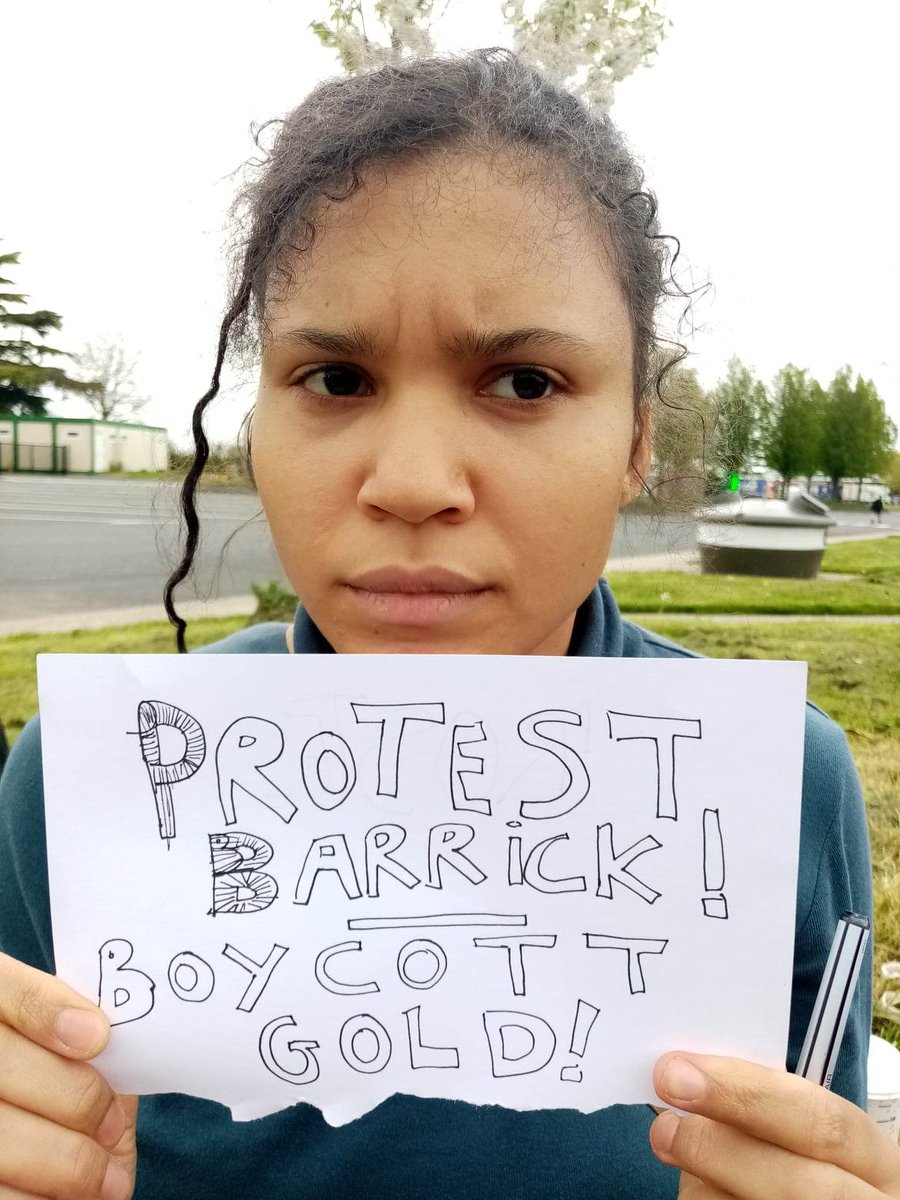 PROTEST
BARRiCK!
BOYCOTT
GOLD!